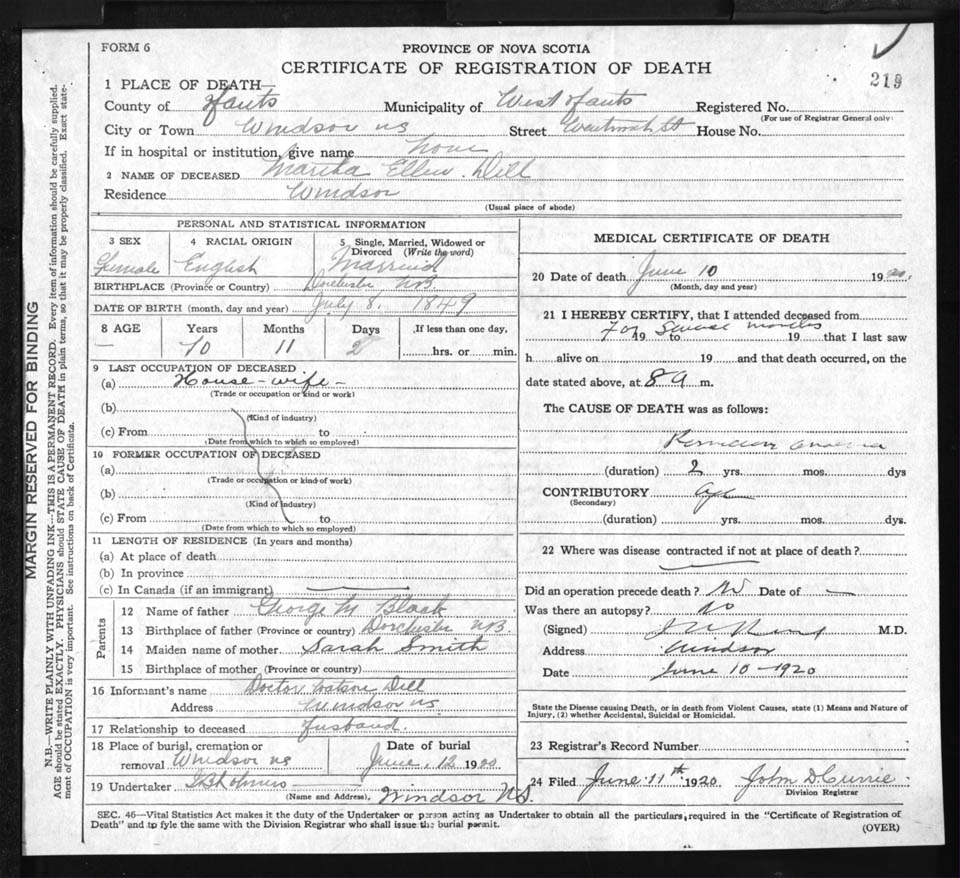 FORM 6
PROVINCE OF NOVA SCOTIA
CERTIFICATE OF REGISTRATION OF DEATH
219
1 PLACE OF DEATH—
County of Hants Municipality of West Hants Registered No.
(For use of Registrar General only)
City or Town Windsor NS Street Wentworth St House No.
If in hospital or institution, give name None
2 NAME OF DECEASED Martha Ellen Dill
Residence Windsor
(Usual place of abode)
PERSONAL AND STATISTICAL INFORMATION
3 SEX 4 RACIAL ORIGIN 5 Single, Married, Widowed or Divorced (Write the word)
Female English Married
BIRTHPLACE (Province or Country) Dorchester NB
DATE OF BIRTH (month, day and year) July 8. 1849
8 AGE Years Months Days If less than one day,
— 70 11 2 hrs. or min.
9 LAST OCCUPATION OF DECEASED
(a) House-wife-
(Trade or occupation or kind or work)
(b)
(Kind of industry)
(c) From to
(Date from which to which so employed)
10 FORMER OCCUPATION OF DECEASED
(a)
(Trade or occupation or kind of work)
(b)
(Kind of industry)
(c) From to
(Date from which to which so employed)
11 LENGTH OF RESIDENCE (In years and months)
(a) At place of death
(b) In province
(c) In Canada (if an immigrant)
Parents
12 Name of father George M Black
13 Birthplace of father (Province or country) Dorchester NB
14 Maiden name of mother Sarah Smith
15 Birthplace of mother (Province or country)
16 Informant's name Doctor Dill
Address Windsor NS
17 Relationship to deceased Husband
18 Place of burial, cremation or removal Windsor NS Date of burial June 12 1920
19 Undertaker
(Name and Address) Windsor N.S.
MEDICAL CERTIFICATE OF DEATH
20 Date of death June 10 1920.
(Month, day and year)
21 I HEREBY CERTIFY, that I attended deceased from
For several months
19 to 19 that I last saw
h alive on 19 and that death occurred, on the
date stated above, at 8 a m.
The CAUSE OF DEATH was as follows:
Pernicious Anaemia
(duration) 2 yrs. mos. dys
CONTRIBUTORY Age
(Secondary)
(duration) yrs. mos. dys.
22 Where was disease contracted if not at place of death?
Did an operation precede death? No Date of —
Was there an autopsy? No
(Signed) M.D.
Address Windsor
Date June 10-1920
State the Disease causing Death, or in death from Violent Causes, state (1) Means and Nature of
Injury, (2) whether Accidental, Suicidal or Homicidal.
23 Registrar's Record Number
24 Filed June 11th 1920 John D. Currie
Division Registrar
SEC. 46—Vital Statistics Act makes it the duty of the Undertaker or person acting as Undertaker to obtain all the particulars, required in the "Certificate of Registration of
Death" and to fyle the same with the Division Registrar who shall issue the burial permit.
(OVER)
MARGIN RESERVED FOR BINDING
N.B.—WRITE PLAINLY WITH UNFADING INK—THIS IS A PERMANENT RECORD. Every item of information should be carefully supplied.
AGE should be stated EXACTLY. PHYSICIANS should STATE CAUSE OF DEATH in plain terms, so that it may be properly classified. Exact state-
ment of OCCUPATION is very important. See instructions on back of Certificate.